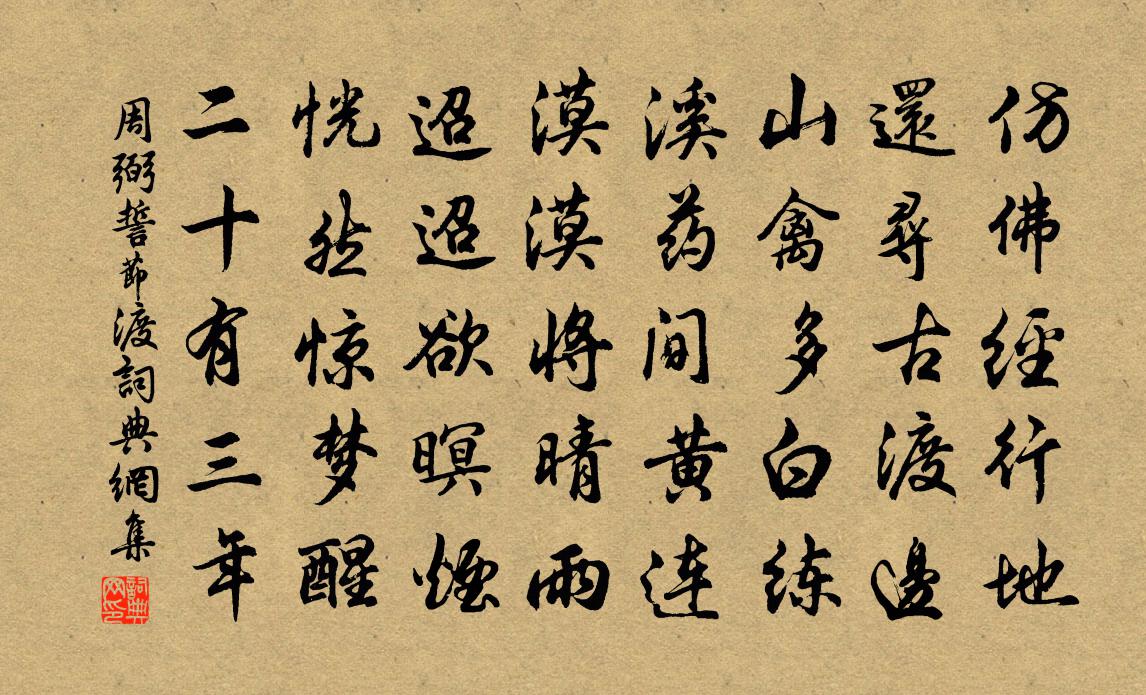 仿佛經行地
還尋古渡邊
山禽多白练
溪药间黄连
漠漠將晴雨
迢迢欲暝煙
恍然惊梦醒
二十有三年
周弼誓節渡詞典網集
詞典网印